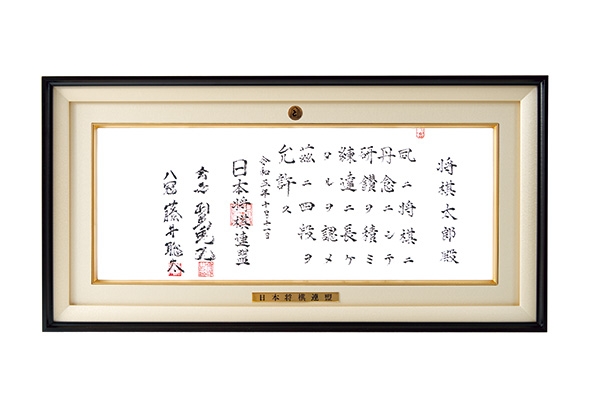 と
将棋太郎殿
夙ニ将棋ニ
丹念ニシテ
研鑽ヲ積ミ
練達ニ長ケ
タルヲ認メ
茲ニ四段ヲ
允許ス
令和五年十月十一日
日本将棋連盟
会長
八冠 藤井聡太
日本将棋連盟